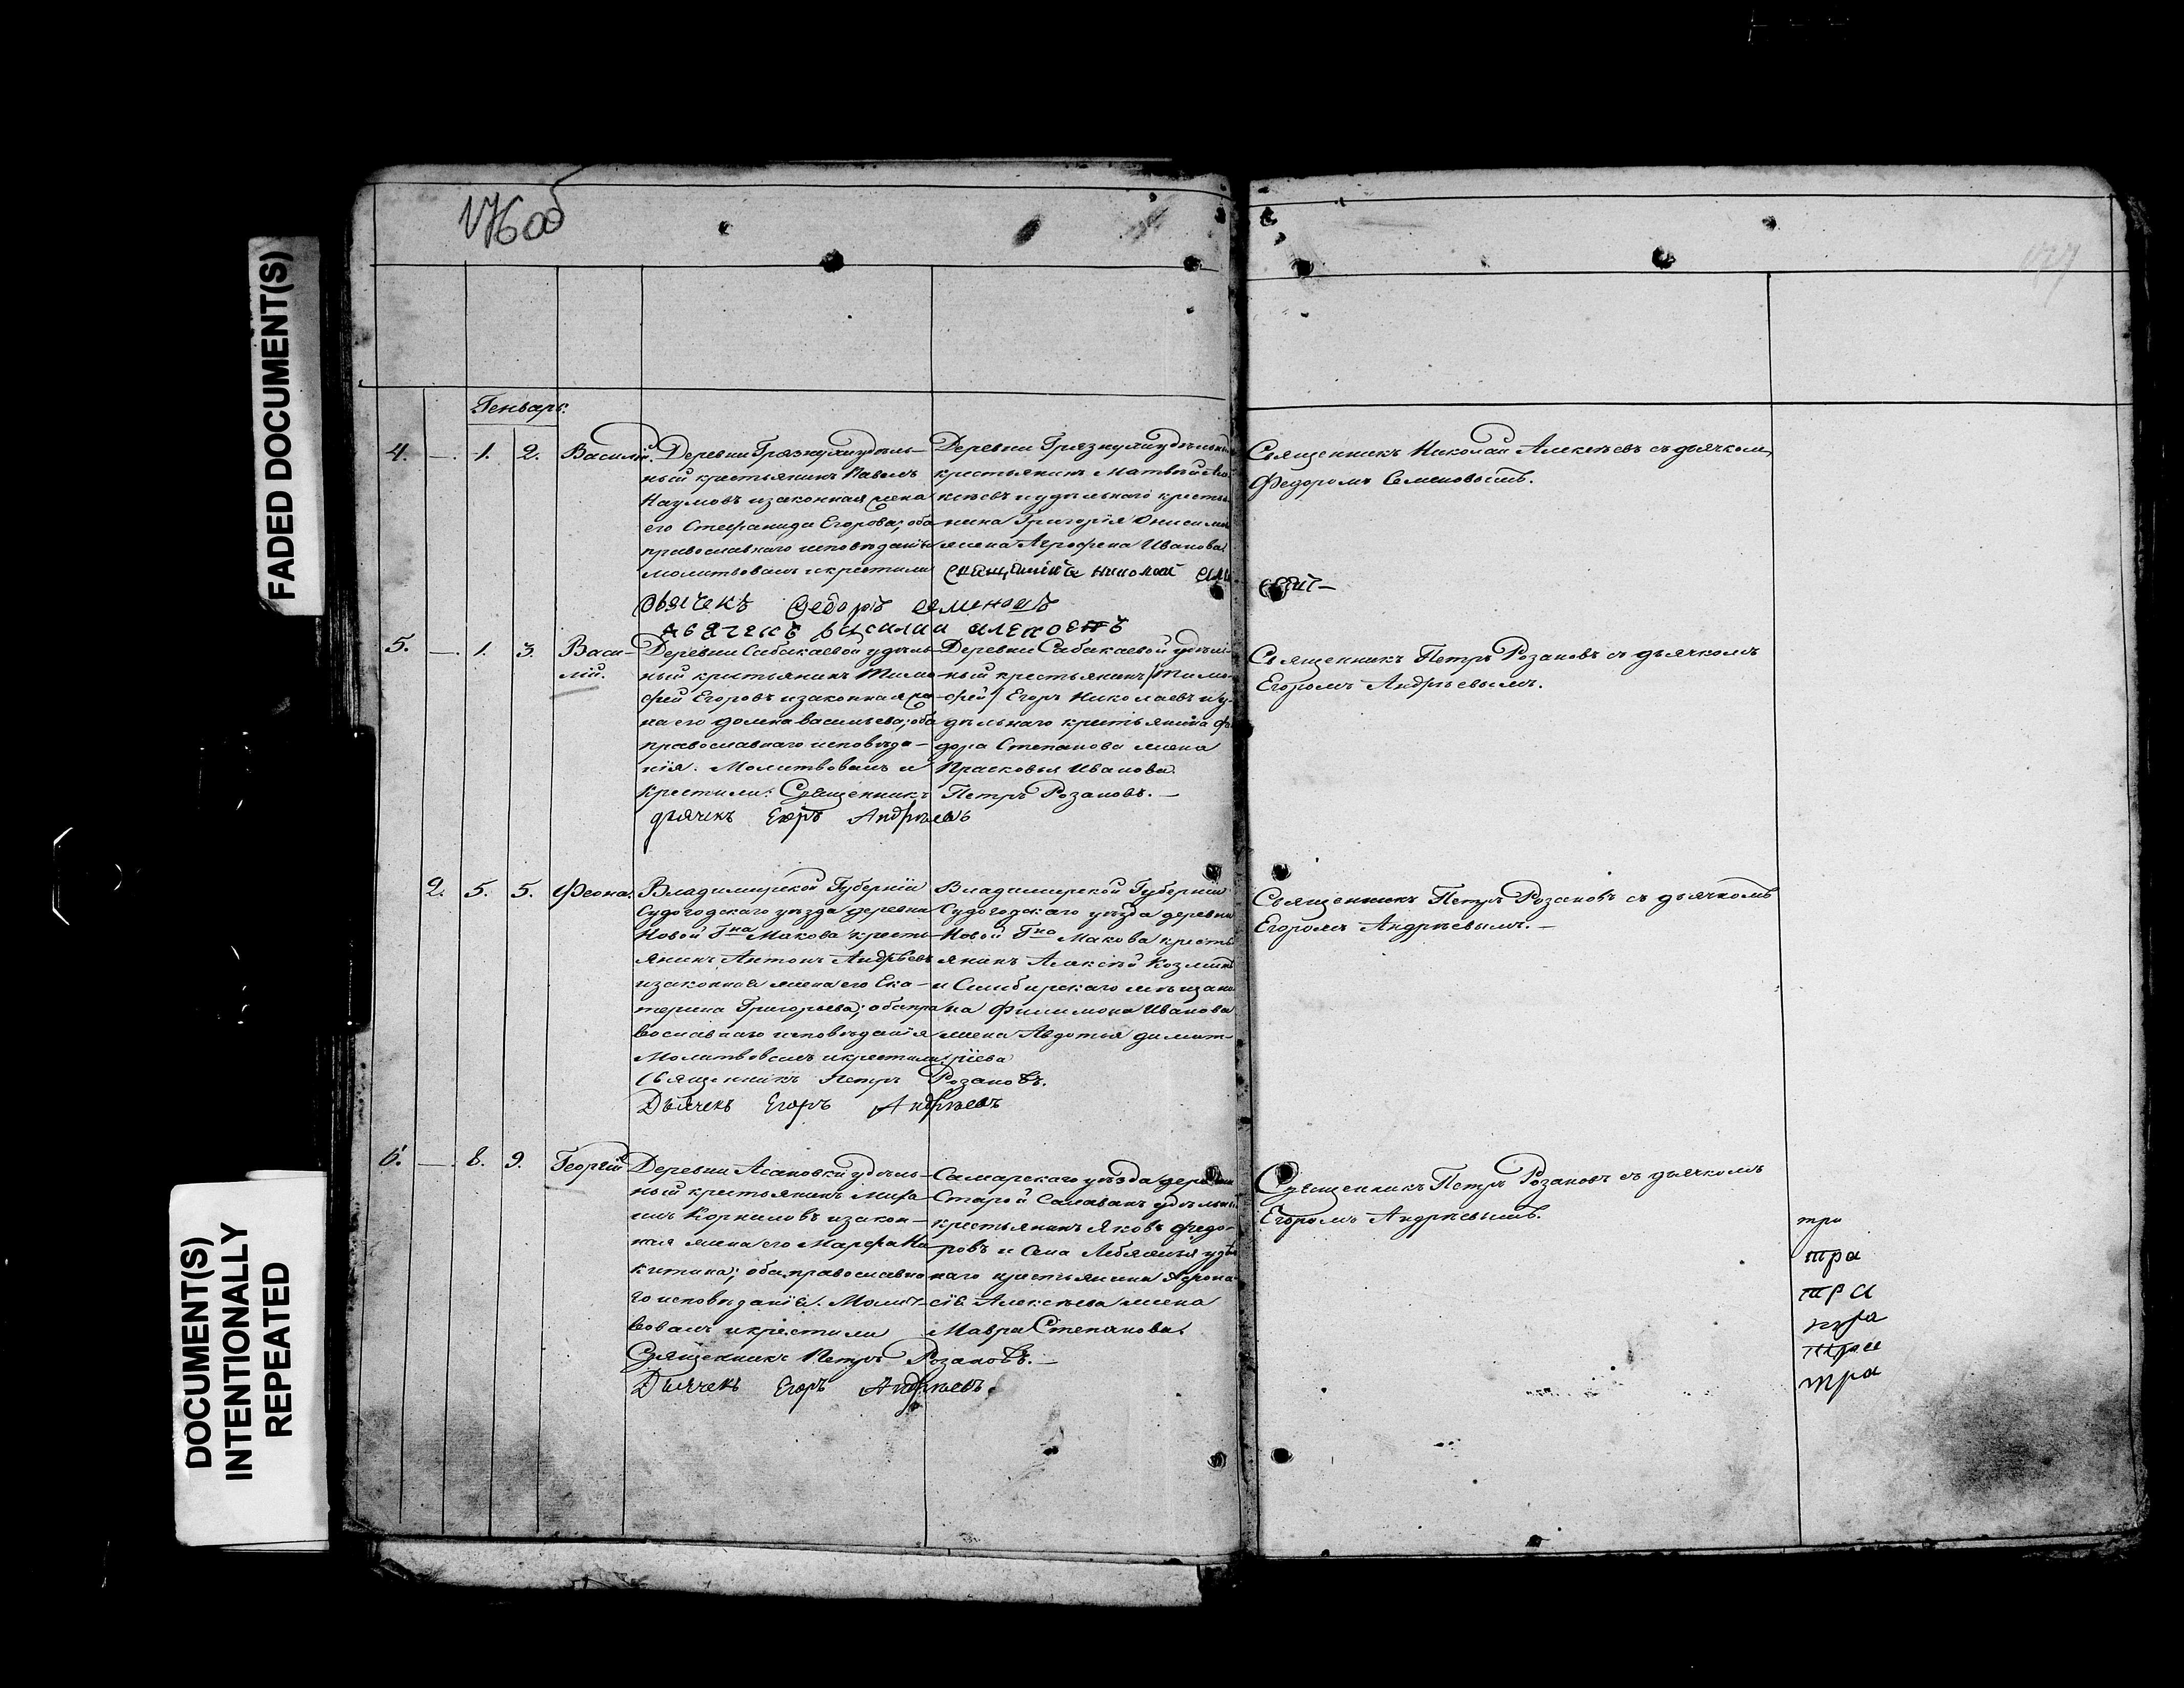 FADED DOCUMENT(S)
DOCUMENT(S)
INTENTIONALLY
REPEATED
176 об
177
Генварь.
4. —. 1. 2. Василій.
Деревни Грязнухи удѣль-
ный крестьянинъ Павелъ
Наумовъ и законная жена
его Стефанида Егорова; оба
православнаго исповѣданія
молитвовалъ и крестили
Деревни Грязнухи удѣльный
крестьянинъ Матвѣй
и удѣльнаго кресть
нина Григорія Онисимо
жена Агрофена Иванова
священникъ николай
дьячекъ Ѳедоръ семеновъ
дьячекъ василии
Священникъ Николай Алексѣевъ съ дьячкомъ
Федоромъ Семеновымъ.
5. —. 1. 3. Васи-
лій.
Деревни Сабакаевой удѣль-
ный крестьянинъ Тимо
фей Егоровъ и законная же
на его домна васильева; оба
православнаго исповѣда-
нія. Молитвовалъ и
Крестили: Священникъ Петръ Розановъ. —
дьячекъ Егоръ Андрѣевъ
Деревни Сабакаевой удѣль
ный крестьянинъ /Тимо-
фей/ Егоръ Николаевъ и у-
дѣльнаго крестьянина Фе
дора Степанова жена
Прасковья Иванова.
Священникъ Петръ Розановъ съ дьячкомъ
Егоромъ Андрѣевымъ.
2. 5. 5. Феона.
Владимирской Губерніи
Судогодскаго уѣзда деревни
Новой Гна Макова кресть-
янинъ Антонъ Андрѣевъ
и законная жена его Ека-
терина Григорьева; оба пра
вославнаго исповѣданія
Молитвовалъ и крестили
Священникъ Петръ Розановъ.
Дьячекъ Егоръ Андрѣевъ
Владимирской Губерніи
Судогодскаго уѣзда деревни
Новой Гна Макова кресть
янинъ Алексѣй Козминъ
и Симбирскаго мѣщани
на Филимона Иванова
жена Авдотья димит-
ріева
Священникъ Петръ Розановъ съ дьячкомъ
Егоромъ Андрѣевымъ. —
6. —. 8. 9. Георгій
Деревни Асановки удѣль-
ный крестьянинъ
Корниловъ и закон-
ная жена его Марфа Ни
китина; оба православна
го исповѣданія. Молит-
вовалъ и крестили
Священникъ Петръ Розановъ. —
Дьячекъ Егоръ Андрѣевъ.
Самарскаго уѣзда деревни
Старой Салаванъ удѣльный
крестьянинъ Яковъ Федо-
ровъ и Села Лебяжья удѣль
наго крестьянина Афона
сія Алексѣева жена
Мавра Степанова.
Священникъ Петръ Розановъ съ дьячкомъ
Егоромъ Андрѣевымъ.
три
тра
тра
тра
тра
тра